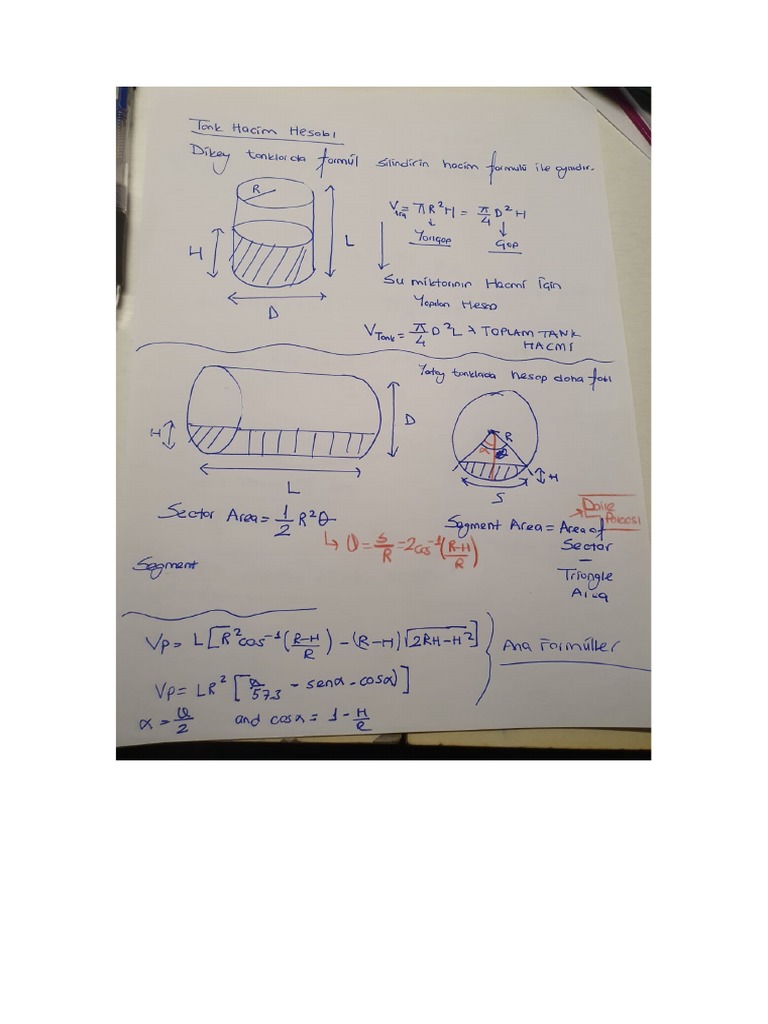 Tank Hacim Hesabı
Dikey tanklarda formül silindirin hacim formülü ile aynıdır.
R
H
L
D
V = πR²H = π/4 D²H
Yarıçap
Çap
Su miktarının Hacmi İçin
Yapılan Hesap
V Tank = π/4 D²L → TOPLAM TANK
HACMİ
Yatay tanklarda hesap daha farklı
H
D
L
R
α
θ
H
S
Sector Area = 1/2 R²θ
↳ θ = S/R = 2cos⁻¹(R-H/R)
Segment Area = Area of
Sector
-
Triangle
Area
→ Daire
Parçası
Segment
Vp = L[R²cos⁻¹(R-H/R) - (R-H)√2RH-H²]
Ana Formüller
Vp = LR²[α/57,3 - senα - cosα)]
α = θ/2 and cosα = 1 - H/R